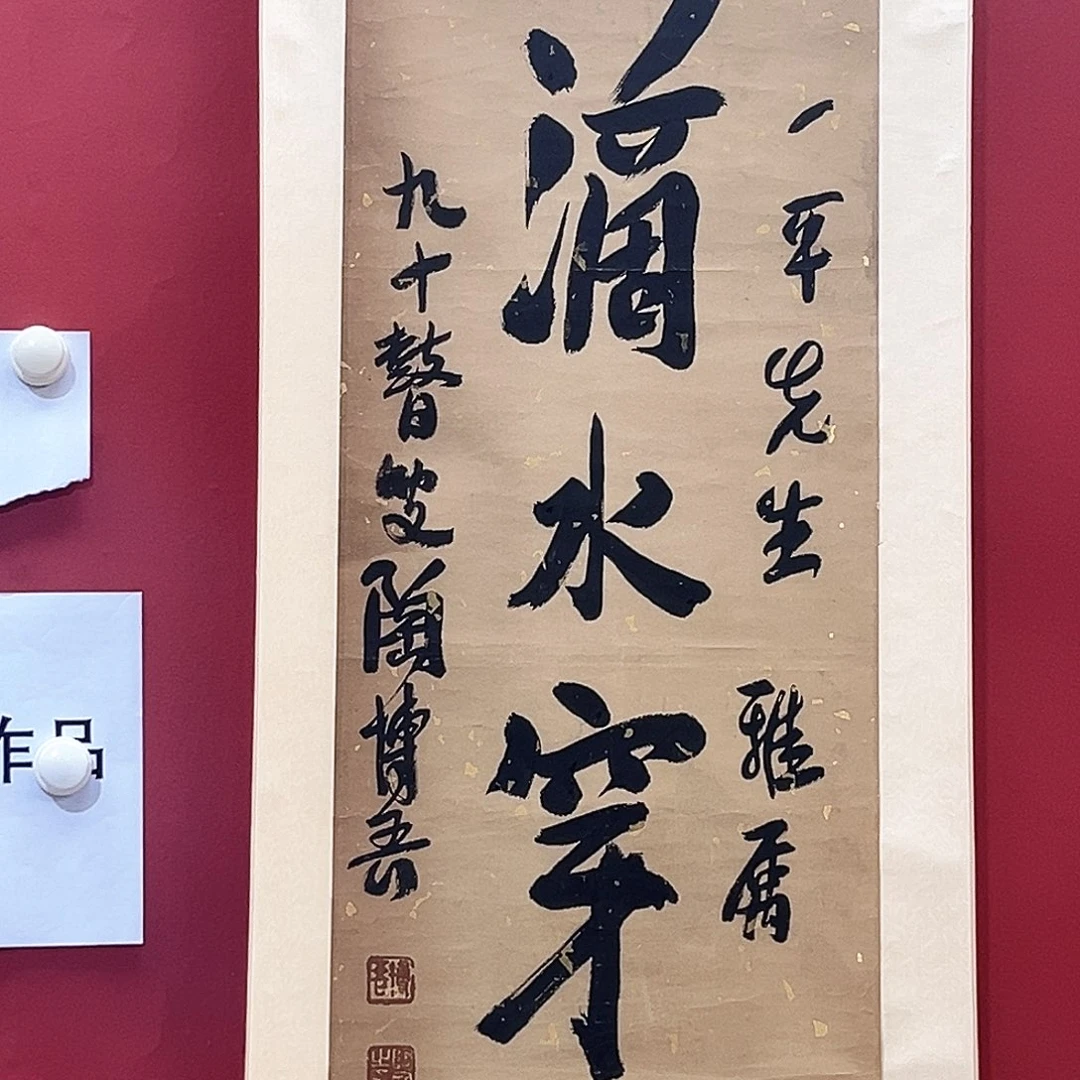 一平先生 雅属
滴水穿
九十瞽叟陶博吾
博吾
作品